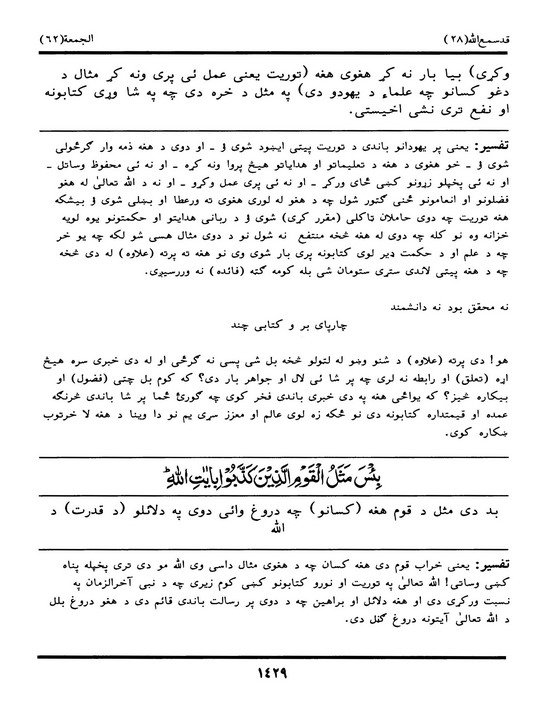 قدسمع الله(٢٨) الجمعة(٦٢)
وکړی) بیا بار نه کړ هغوی هغه (توریت یعنی عمل ئی پری ونه کړ مثال د
دغو کسانو چه علماء د یهودو دی) په مثل د خره دی چه په شا وړی کتابونه
او نفع تری نشی اخیستی.
تفسیر: یعنی پر یهودانو باندی د توریت پیتی ایښود شوی ؤ ـ او دوی د هغه ذمه وار گرځولی
شوی ؤ ـ خو هغوی د هغه د تعلیماتو او هدایاتو هیڅ پروا ونه کړه ـ او نه ئی محفوظ وساتل ـ
او نه ئی پخپلو زړونو کښی ځای ورکړ ـ او نه ئی پری عمل وکړو ـ او نه د الله تعالیٰ له هغو
فضلونو او انعامونو ځنی گتور شول چه د هغو له لوری هغوی ته ورعطا او بښلی شوی ؤ بیشکه
هغه توریت چه دوی حاملان ټاکلی (مقرر کړی) شوی ؤ د ربانی هدایتو او حکمتونو یوه لویه
خزانه وه نو کله چه دوی له هغه څخه منتفع نه شول نو د دوی مثال هسی شو لکه چه یو خر
چه د علم او د حکمت ډیر لوی کتابونه پری بار شوی وی نو هغه ته پرته (علاوه) له دی څخه
چه د هغه پیتی لاندی ستړی ستومان شی بله کومه گټه (فائده) نه وررسیږی.
نه محقق بود نه دانشمند
چارپای بر و کتابی چند
هو! دی پرته (علاوه) د شنو وښو له لټولو څخه بل شی پسی نه گرځی او له دی خبری سره هیڅ
اړه (تعلق) او رابطه نه لری چه پر شا ئی لال او جواهر بار دی؟ که کوم بل چټی (فضول) او
بیکاره څیز؟ که یواځی هغه په دی خبری باندی فخر کوی چه گورئ ځما پر شا باندی څرنگه
عمده او قیمتداره کتابونه دی نو ځکه زه لوی عالم او معزز سړی یم نو دا وینا د هغه لا خرتوب
ښکاره کوی.
بِئْسَ مَثَلُ الْقَوْمِ الَّذِيْنَ كَذَّبُوْا بِاٰيٰتِ اللّٰهِ ؕ
بد دی مثل د قوم هغه (کسانو) چه دروغ وائی دوی په دلائلو (د قدرت) د
الله
تفسیر: یعنی خراب قوم دی هغه کسان چه د هغوی مثال داسی وی الله مو دی تری پخپله پناه
کښی وساتی! الله تعالیٰ په توریت او نورو کتابونو کښی کوم زیری چه د نبی آخرالزمان په
نسبت ورکړی دی او هغه دلائل او براهین چه د دوی پر رسالت باندی قائم دی د هغو دروغ بلل
د الله تعالیٰ آیتونه دروغ گڼل دی.
١٤٢٩